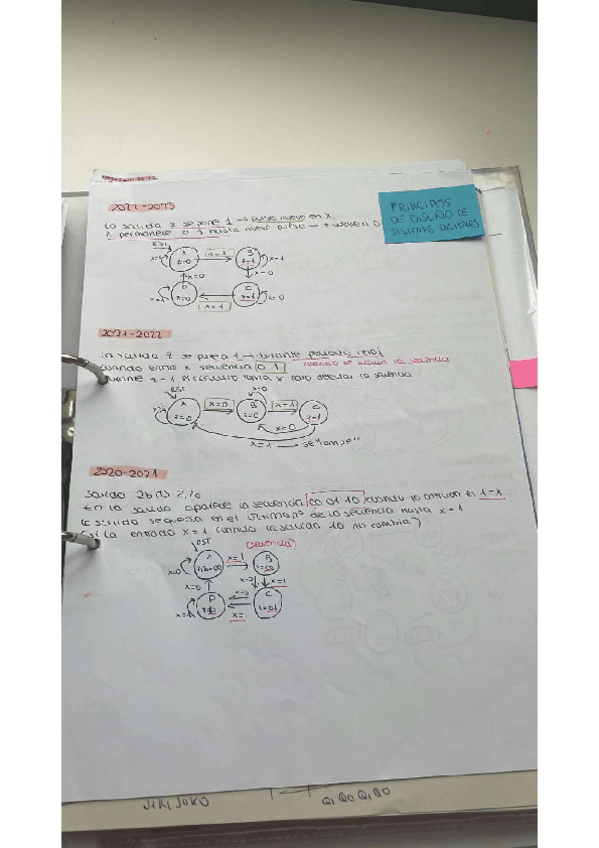 PRINCIPIOS
DE DISEÑO DE
SISTEMAS DIGITALES
2022-2023
La salida z se pone 1 → pulso nuevo en x
z permanece a 1 hasta nuevo pulso → z vuelve a 0
RST
A
z=0
x=1
B
z=1
x=1
x=0
x=0
D
z=0
x=1
C
z=1
x=0
2021-2022
La salida z se pone a 1 → durante
cuando entre x secuencia 0 1
durante z=1 el circuito x para detectar la secuencia
RST
x=1
A
z=0
x=0
B
z=0
x=0
x=1
C
z=1
x=0
x=1 → se "rompe"
2020-2021
Salida 2 bits
En la salida aparece la secuencia 00 01 10 cuando la entrada es 1-x
La salida se queda en el último nº de la secuencia hasta x=1
(si la entrada x=1 cuando la salida 10 no cambia)
RST
(secuencia)
x=0
A
x=1
B
z=00
x=0
x=1
x=0
D
C
z=01
x=1
J1K1J0K0
Q1Q0Q1Q0